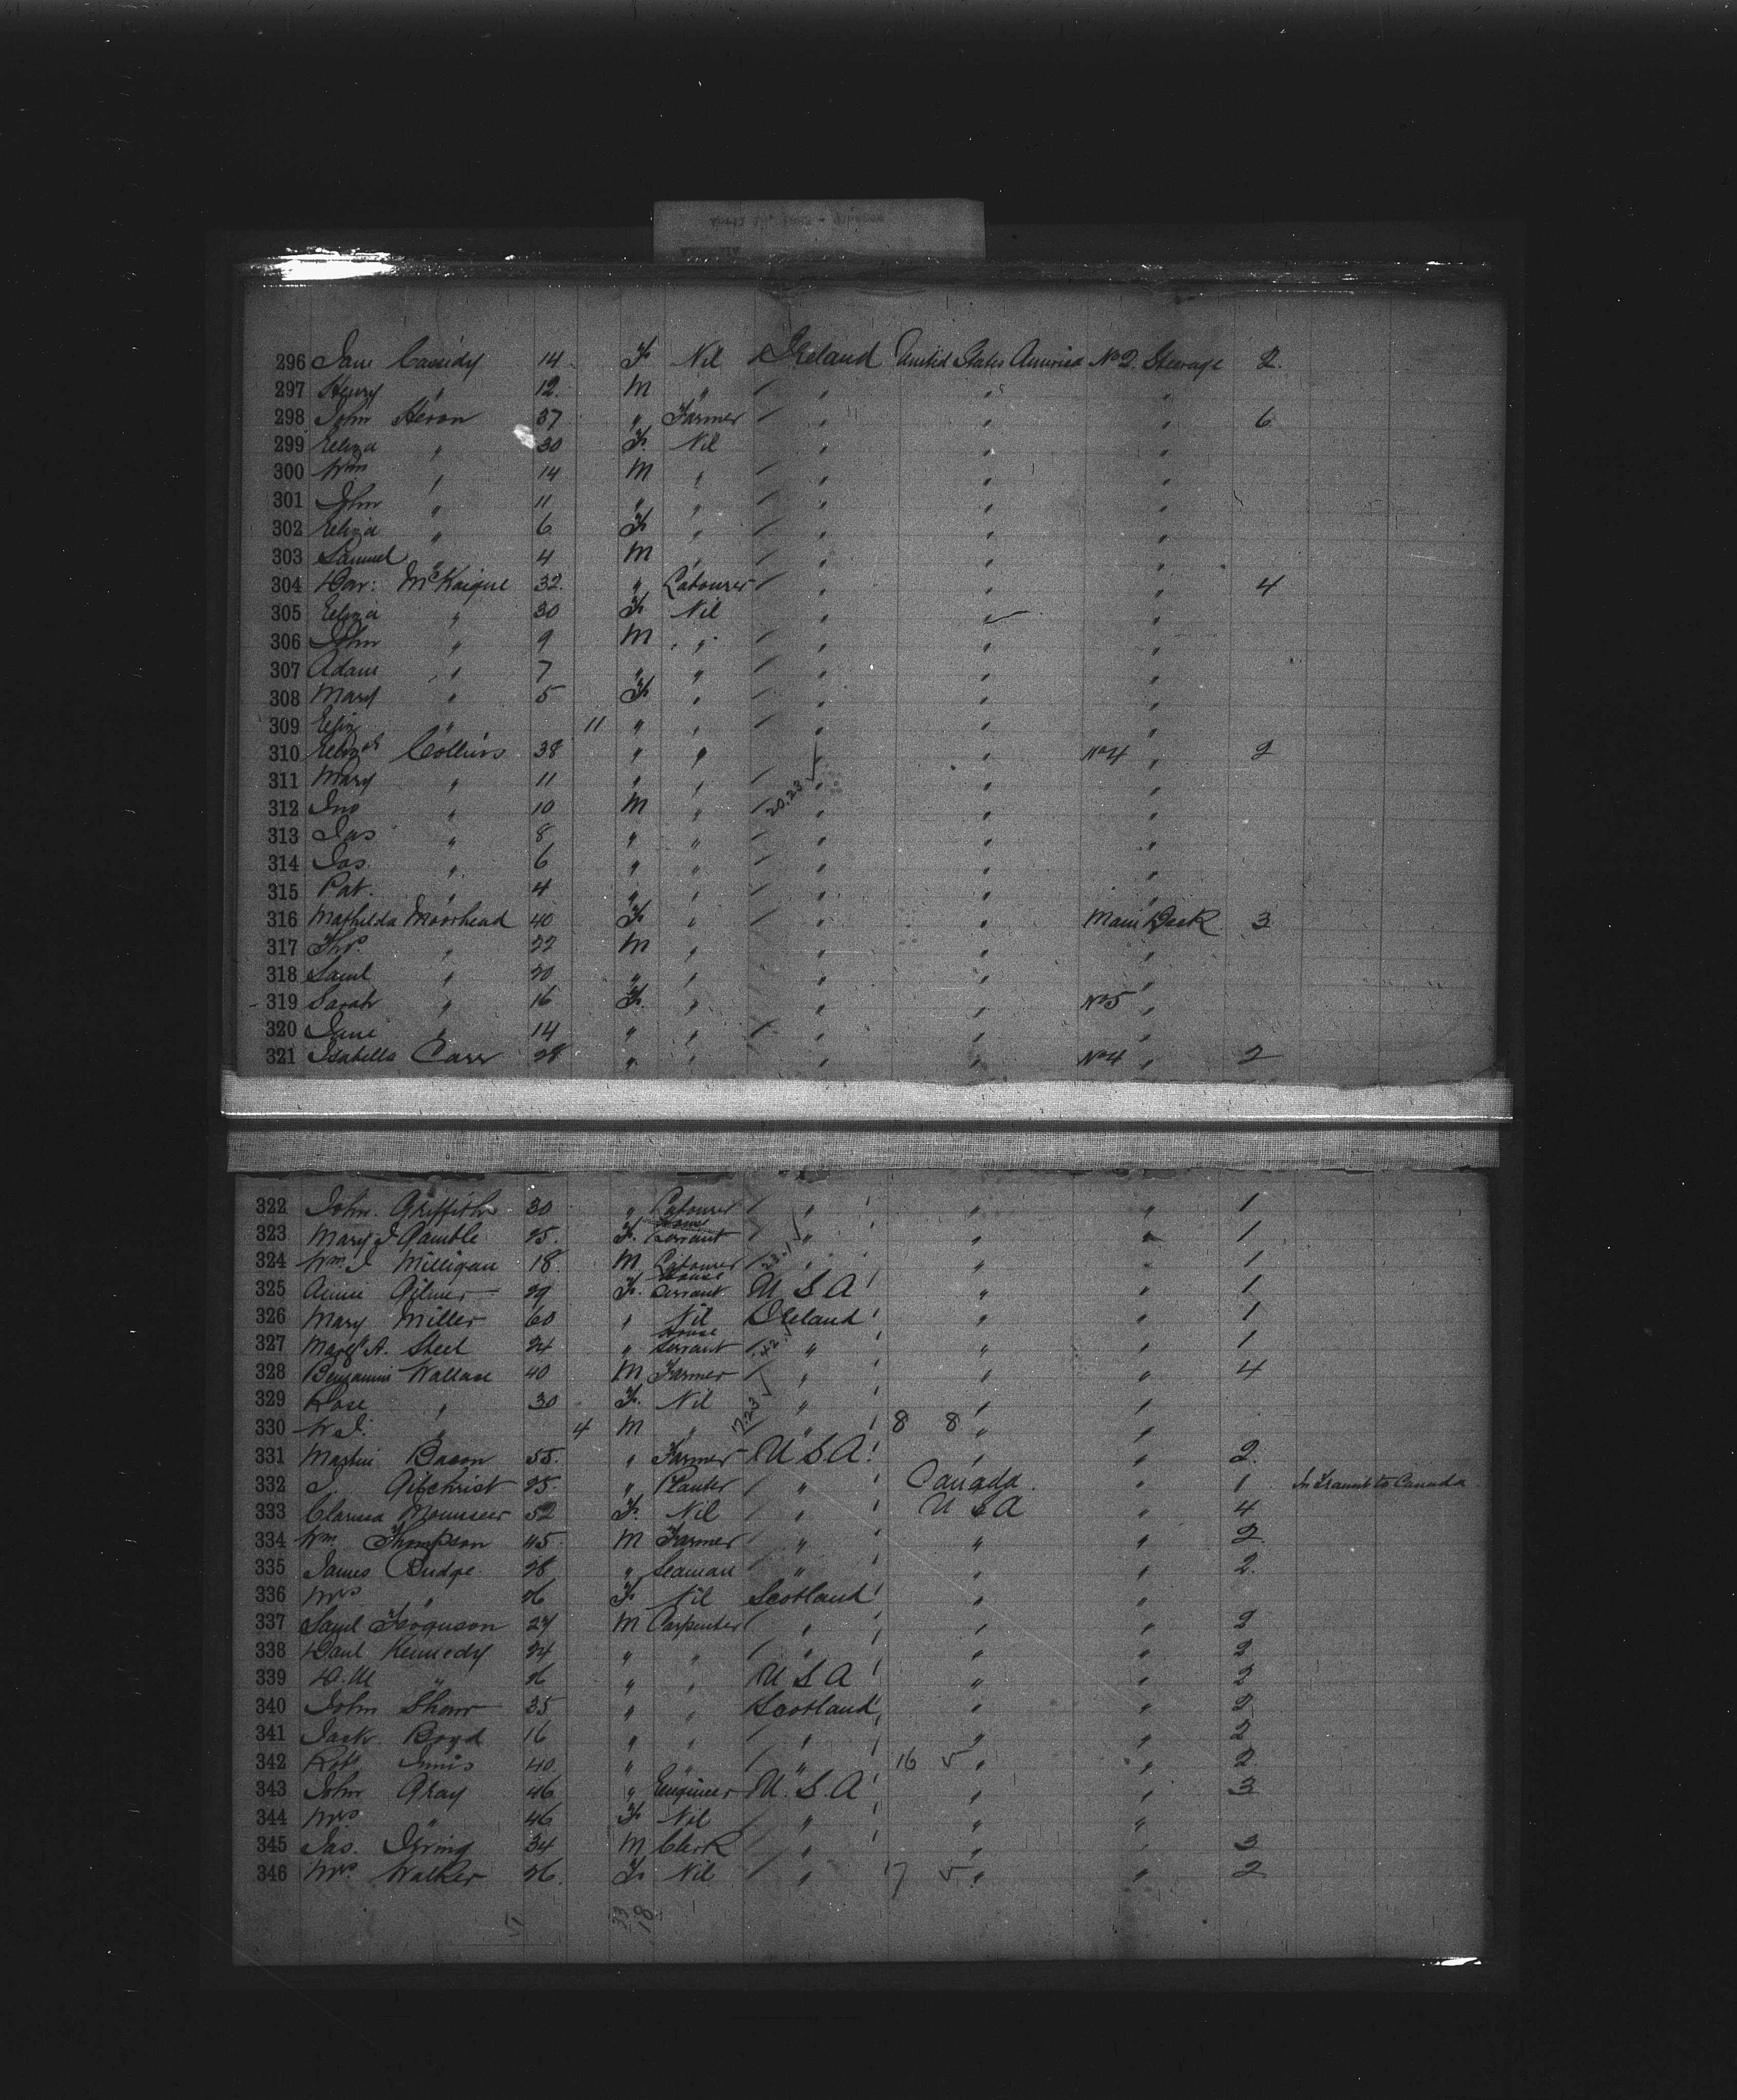 296 Jane Cassidy 14 F Nil Ireland United States America No 2. Steerage 2.
297 Henry " 12. M " " " "
298 John Heron 37 " Farmer " " " 6
299 Eliza " 30 F. Nil " " "
300 Wm " 14 M " " " "
301 John " 11 " " " " "
302 Eliza " 6 F " " " "
303 Samuel " 4 M " " " "
304 McKaigue 32. " Labourer " " " 4
305 Eliza " 30 F Nil " " "
306 John " 9 M " " " "
307 Adam " 7 " " " " "
308 Mary " 5 F " " " "
309 " 11 " " " " "
310 Elizth Collins 38 " " " " No 4 " 2
311 Mary " 11 " " " " "
312 Jno " 10 M " 20.23 " " "
313 Jas " 8 " " " " "
314 Jos. " 6 " " " " "
315 Pat. " 4 " " " " "
316 Mathilda Moorhead 40 F " " " Main Deck 3
317 Thos. " 22 M " " " "
318 Saml " 20 " " " " "
319 Sarah " 16 F. " " " No 5 "
320 Jane " 14 " " " " "
321 Isabella Carr 28 " " " " No 4 " 2
322 John Griffiths 30 " Labourer " " " 1
323 Mary J Gamble 25. F. House Servant " " " 1
324 Wm J Milligan 18. M Labourer " " " 1
325 Annie Gilmer 29 F. House Servant U S A " " 1
326 Mary Miller 60 " Nil Ireland " " 1
327 Margt A. Steel 24 " House Servant " " " 1
328 Benjamin Wallace 40 M Farmer " " " 4
329 Rose " 30 F. Nil " " "
330 W J. " 4 M " " 8 8 " "
331 Martin Bacon 55. " Farmer U S A " " 2.
332 J. Gilchrist 25. " Planter " Canada " 1 In Transit to Canada
333 Clarissa Mounseer 52 F. Nil " U S A " 4
334 Wm. Thompson 45 M Farmer " " " 2.
335 James Budge 28 " Seaman " " " 2.
336 Mrs " 26 F. Nil Scotland " "
337 Saml Ferguson 27 M Carpenter " " " 2
338 Danl Kennedy 24 " " " " " 2
339 " 26 " " U S A " " 2
340 John Shaw 35 " " Scotland " " 2
341 Jack Boyd 16 " " " " " 2
342 Robt Innis 40 " " " 16 5 " " 2
343 John Gray 46 " Engineer U. S. A " " 3
344 Mrs " 46 F. Nil " " "
345 Jas. Irving 34 M Clerk " " " 3
346 Mrs. Walker 26. F. Nil " 17 5 " " 2
33
18